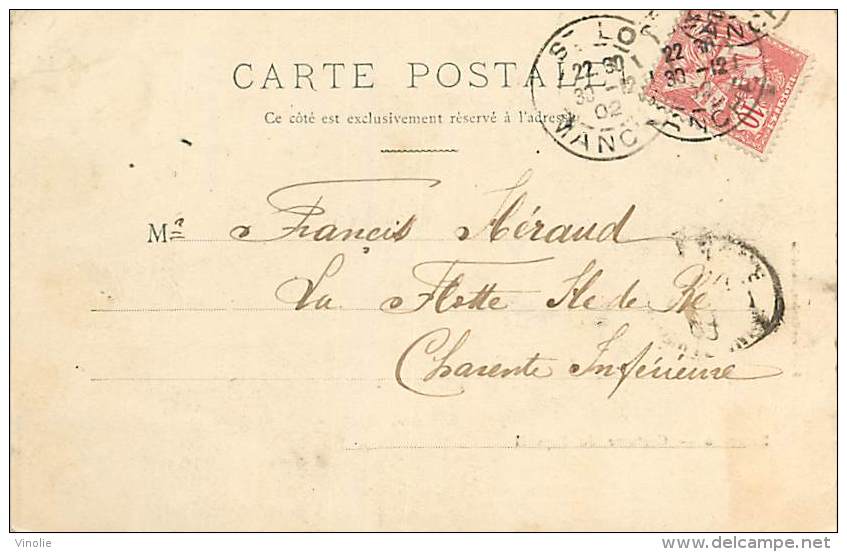 CARTE POSTALE
Ce côté est exclusivement réservé à l'adresse
ST LO
22 30
30 - 12
02
MANCHE
22
30 - 12
10
POSTES
Mr Francis Héraud
La Flotte Ile de Ré
Charente Inférieure
Vinolie
www.delcampe.net